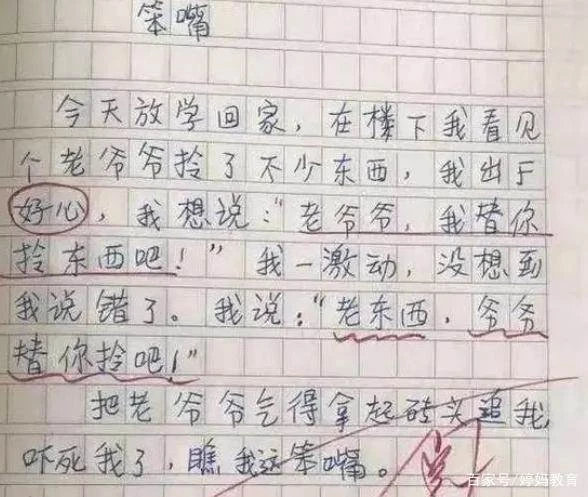 笨嘴
今天放学回家，在楼下我看见
个老爷爷拎了不少东西，我出于
好心，我想说："老爷爷，我替你
拎东西吧！"我一激动，没想到
我说错了。我说："老东西，爷爷
替你拎吧！"
把老爷爷气得拿起砖头追我，
吓死我了，瞧我这笨嘴。
百家号/婷妈教育